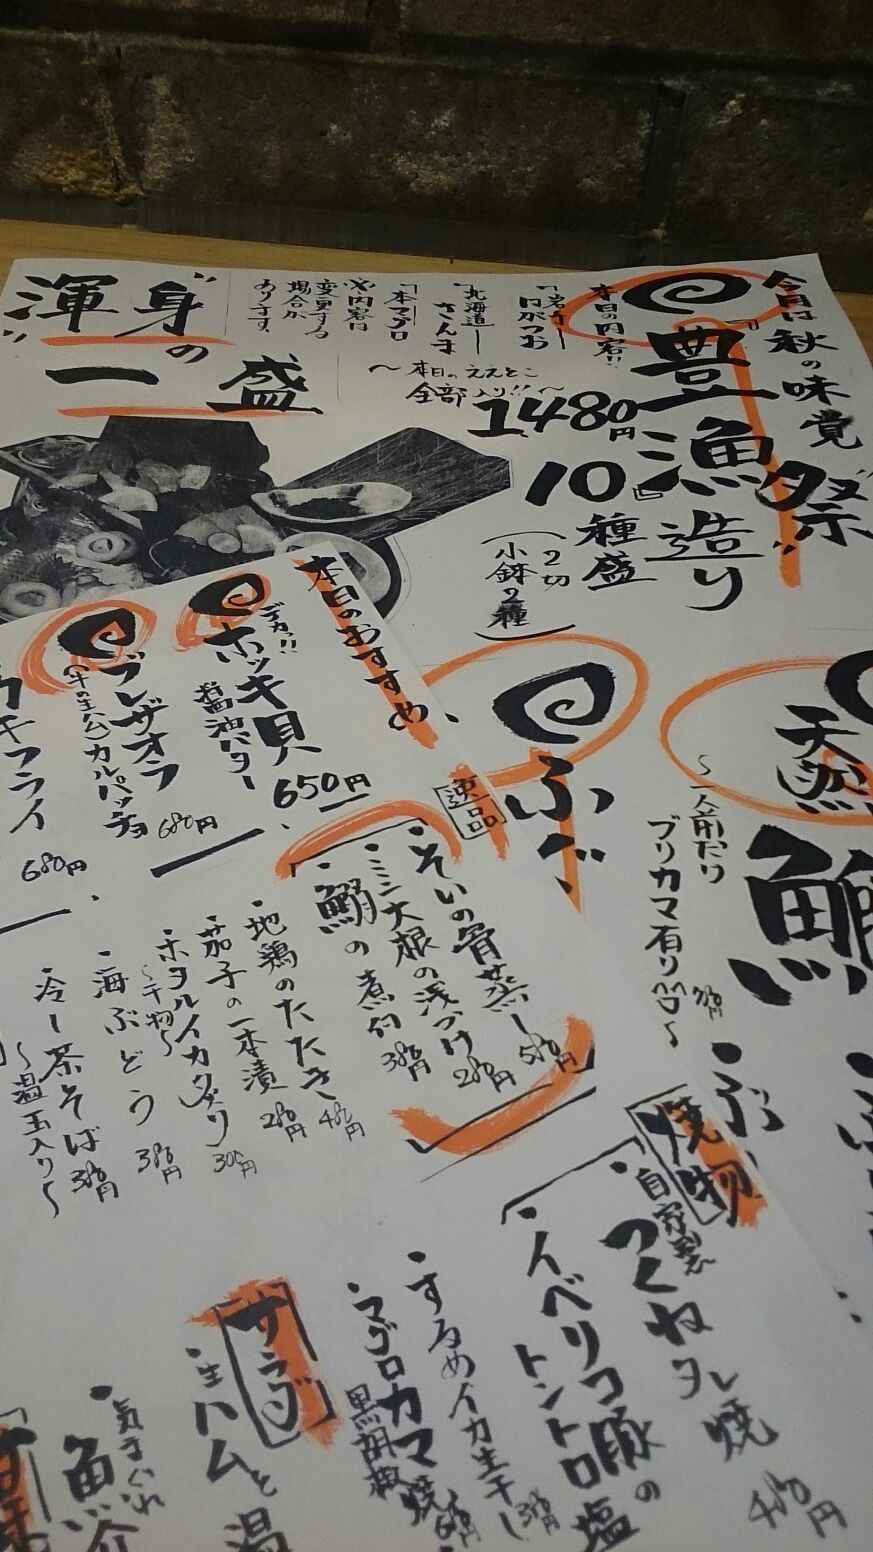 今月は秋の味覚
"豊漁祭"
『豊漁造り』
10種盛
(2切
小鉢2種)
1,480円
本日の内容!!
・北海道
さんま
・本マグロ
※内容は
変更する
場合が
あります。
〜本日のええとこ
全部入り!!〜
"渾身"の
一盛
天然
鰤
〜一人前だり
ブリカマ有り〜
ふぐ
本日のおすすめ
デカッ!!
ホッキ貝
醤油バター
650円
ブレザオラ
(牛の生ハム)カルパッチョ
680円
カキフライ
680円
逸品
・そいの骨蒸し
580円
・ミニ大根の浅づけ
280円
・鰯の煮付
380円
・地鶏のたたき
480円
・茄子の一本漬
280円
・ホタルイカ炙り
〜干物〜
300円
・海ぶどう
380円
・冷し茶そば
〜温玉入り〜
380円
焼物
・自家製
つくねタレ焼
480円
・イベリコ豚の
トントロ塩
・するめイカ生干し
380円
・マグロカマ焼
黒胡椒
680円
サラダ
・生ハムと温
・気まぐれ
魚介